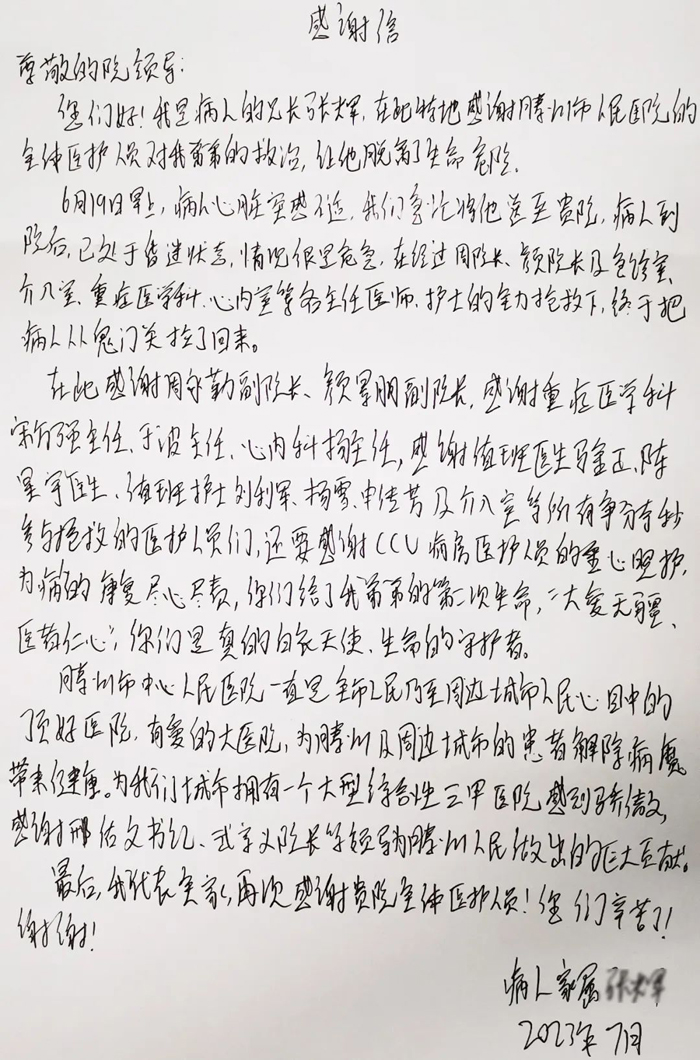 感谢信
尊敬的院领导:
您们好!我是病人的兄长张辉,在此特地感谢滕州市人民医院的
全体医护人员对我弟弟的救治,让他脱离了生命危险.
6月19日早上,病人心脏突感不适,我们急忙将他送至贵院,病人到
院后,已处于昏迷状态,情况很是危急,在经过周院长、颜院长及急诊室、
介入室、重症医学科、心内室等各主任医师、护士的全力抢救下,终于把
病人从鬼门关拉了回来。
在此感谢周守勤副院长、颜景朋副院长,感谢重症医学科
强主任、于波主任、心内科杨主任,感谢值班医生马金正、陈
星宇医生、值班护士刘利军、杨雪、申佳芳及介入室等所有争分夺秒
参与抢救的医护人员们,还要感谢CCU病房医护人员的重心照护,
为病的康复尽心尽责,你们给了我弟弟的第二次生命,“大爱无疆、
医者仁心”,你们是真的白衣天使、生命的守护者。
滕州市中心人民医院一直是全市人民乃至周边城市人民心目中的
顶好医院,有爱的大医院,为滕州及周边城市的患者解除病魔
带来健康。为我们城市拥有一个大型综合性三甲医院感到骄傲,
感谢邢佑文书记、院长等领导为滕州人民做出的巨大贡献。
最后,我代表全家,再次感谢贵院全体医护人员!您们辛苦了!
谢谢!
病人家属
2023年7月